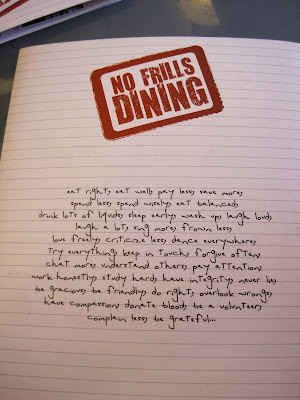 NO FRILLS
DINING
eat right, eat well, pay less, save more,
spend less, spend wisely, eat balanced,
drink lots of liquids, sleep early, wash up, laugh loud,
laugh a lot, sing more, frown less,
love freely, criticize less, dance everywhere,
try everything, keep in touch, forgive often,
chat more, understand others, pay attention,
work honestly, study hard, have integrity, never lie,
be gracious, be friendly, do right, overlook wrongs,
have compassion, donate blood, be a volunteer,
complain less, be grateful...